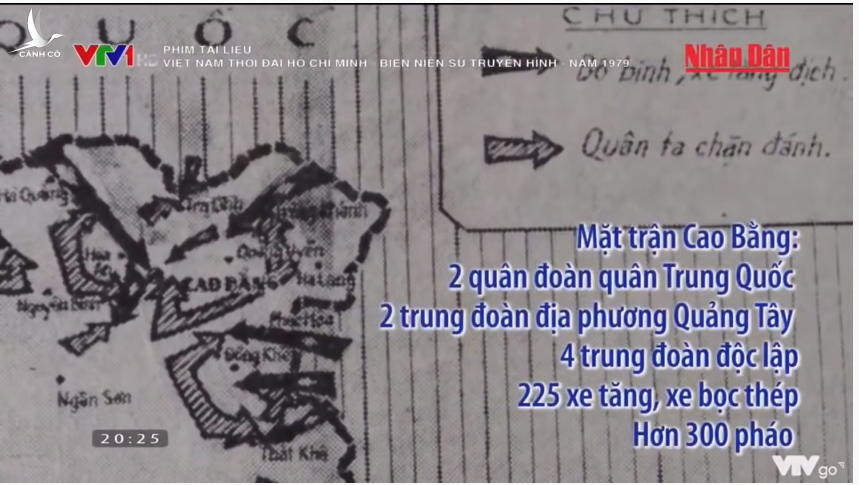 Q U Ố C
CÁNH CÒ
VTV1 HD
PHIM TÀI LIỆU
VIỆT NAM THỜI ĐẠI HỒ CHÍ MINH BIÊN NIÊN SỬ TRUYỀN HÌNH - NĂM 1979
CHÚ THÍCH
Nhân Dân
Bộ binh, xe tăng địch.
Quân ta chặn đánh.
Hà Quảng
Trùng Khánh
Quảng Uyên
CAO BẰNG
Hạ Lang
Nguyên Bình
Phục Hòa
Đông Khê
Ngân Sơn
Thất Khê
Mặt trận Cao Bằng:
2 quân đoàn quân Trung Quốc
2 trung đoàn địa phương Quảng Tây
4 trung đoàn độc lập
225 xe tăng, xe bọc thép
Hơn 300 pháo
20:25
VTVgo